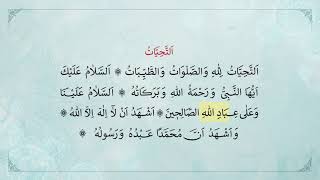 اَلتَّحِيَّاتُ
اَلتَّحِيَّاتُ لِلّٰهِ وَالصَّلَوَاتُ وَالطَّيِّبَاتُ ۞ اَلسَّلَامُ عَلَيْكَ
اَيُّهَا النَّبِيُّ وَرَحْمَةُ اللهِ وَبَرَكَاتُهُ ۞ اَلسَّلَامُ عَلَيْنَا
وَعَلٰى عِبَادِ اللهِ الصَّالِحِينَ ۞ اَشْهَدُ اَنْ لَٓا اِلٰهَ اِلَّا اللهُ ۞
وَاَشْهَدُ اَنَّ مُحَمَّدًا عَبْدُهُ وَرَسُولُهُ ۞